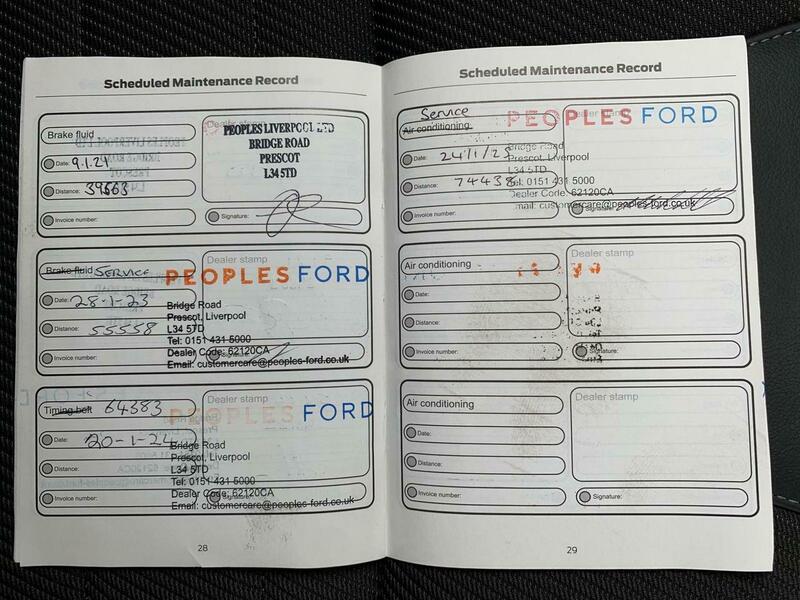 Scheduled Maintenance Record
Brake fluid
Dealer stamp
PEOPLES LIVERPOOL LTD
BRIDGE ROAD
PRESCOT
L34 5TD
Date: 9.1.21
Distance: 39663
Invoice number:
Signature:
Brake fluid SERVICE
PEOPLES FORD
Date: 28-1-23
Distance: 55558
Invoice number:
Bridge Road
Prescot, Liverpool
L34 5TD
Tel: 0151 431 5000
Dealer Code: 62120CA
Email: customercare@peoples-ford.co.uk
Timing belt 64383
Dealer stamp
PEOPLES FORD
Date: 20-1-24
Distance:
Invoice number:
Signature:
Bridge Road
Prescot, Liverpool
L34 5TD
Tel: 0151 431 5000
Dealer Code: 62120CA
Email: customercare@peoples-ford.co.uk
28
Scheduled Maintenance Record
Service
Air conditioning
Dealer stamp
PEOPLES FORD
Date: 24/1/25
Distance: 74438
Invoice number:
Signature:
Bridge Road
Prescot, Liverpool
L34 5TD
Tel: 0151 431 5000
Dealer Code: 62120CA
Email: customercare@peoples-ford.co.uk
Air conditioning
Dealer stamp
Date:
Distance:
Invoice number:
Signature:
Air conditioning
Dealer stamp
Date:
Distance:
Invoice number:
Signature:
29